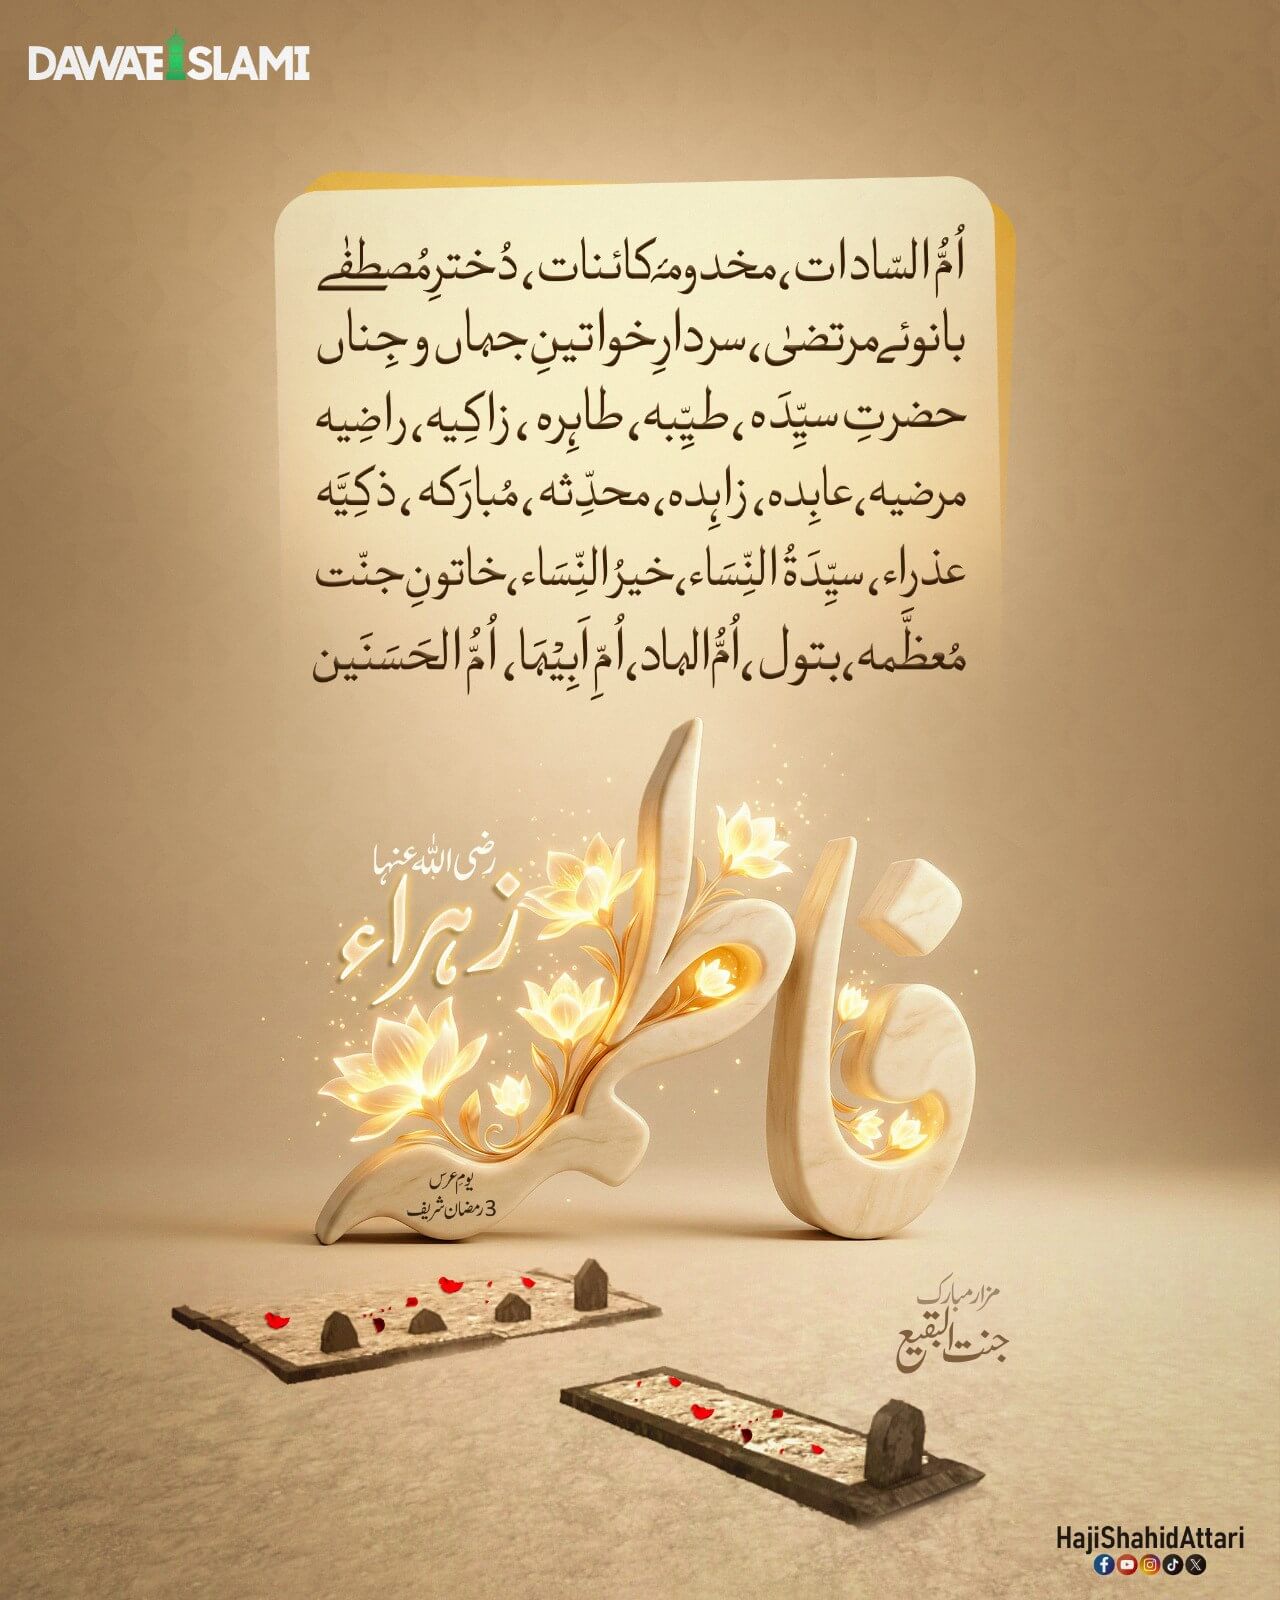 DAWATEISLAMI
اُمُّ السّادات، مخدومۂ کائنات، دُخترِ مُصطفٰے
بانوئے مرتضیٰ، سردارِ خواتینِ جہاں و جِناں
حضرتِ سیِّدَہ، طیِّبہ، طاہِرہ، زاکِیہ، راضِیہ
مرضیہ، عابِدہ، زاہِدہ، محدِّثہ، مُبارَکہ، ذکِیَّہ
عذراء، سیِّدَۃُ النِّسَاء، خیرُ النِّسَاء، خاتونِ جنّت
مُعظَّمہ، بتول، اُمُّ الہاد، اُمِّ اَبِیْہَا، اُمُّ الحَسَنَین
رضی اللہ عنہا
فاطمہ زہراء
یومِ عرس
3 رمضان شریف
مزار مبارک
جنت البقیع
HajiShahidAttari